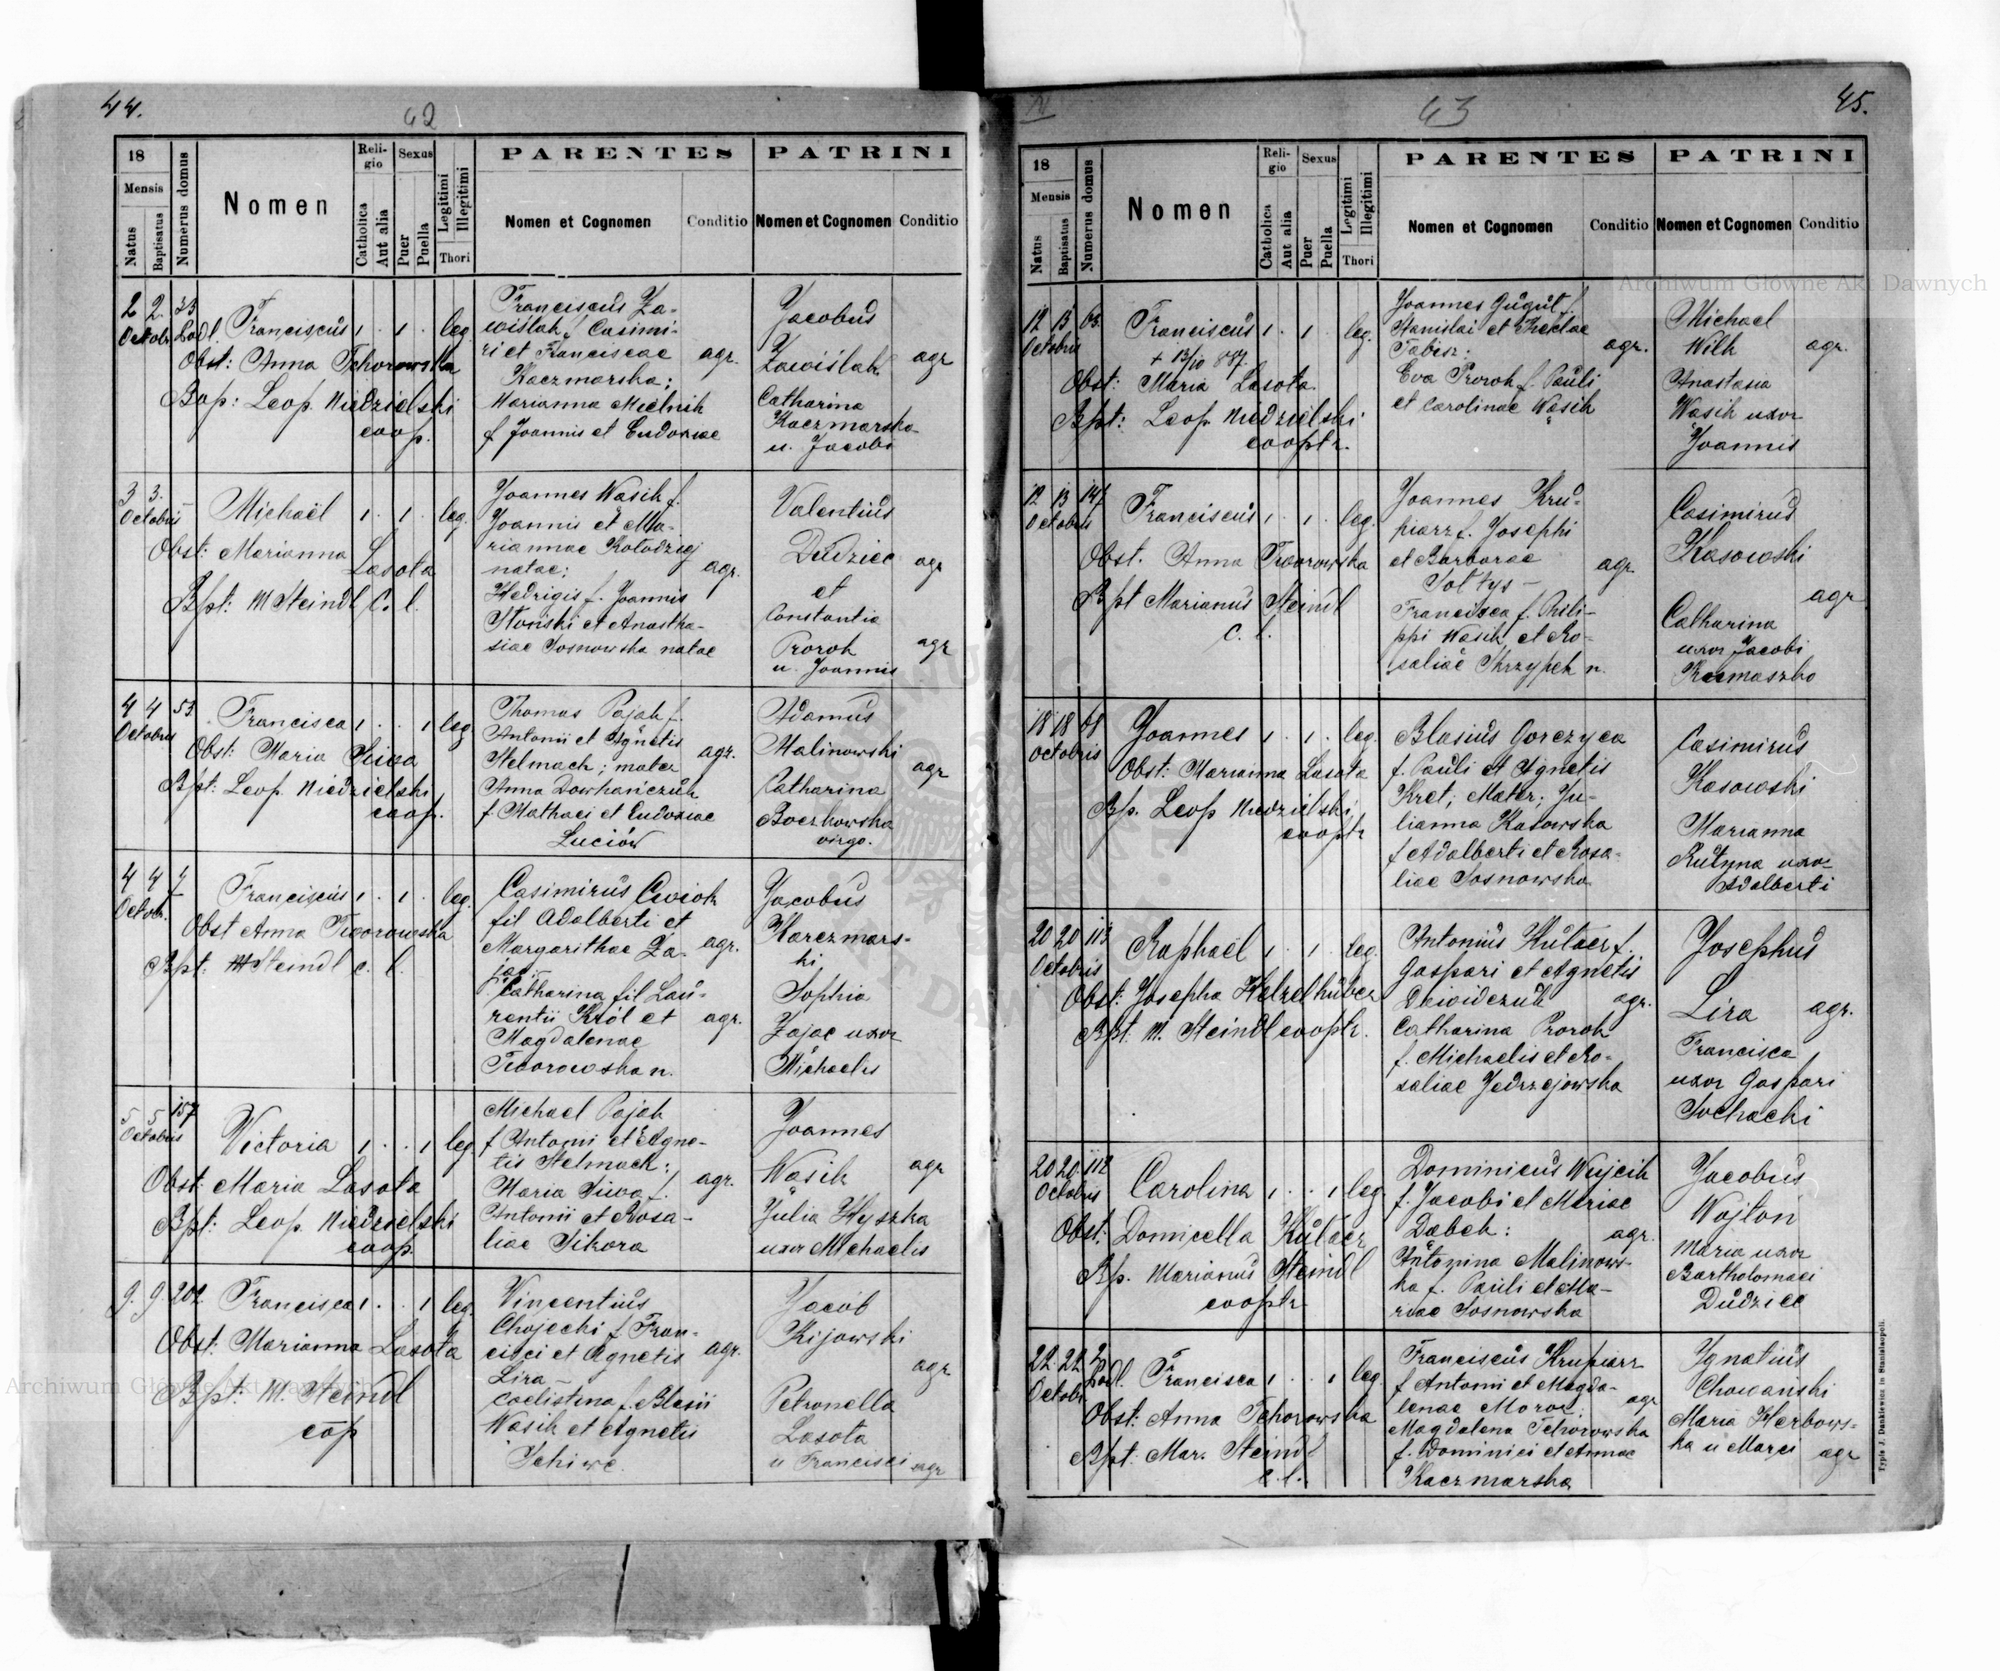 44.
42
18
Mensis
Natus
Baptisatus
Numerus domus
Nomen
Reli-
gio
Catholica
Aut alia
Sexus
Puer
Puella
Legitimi
Illegitimi
Thori
PARENTES
Nomen et Cognomen
Conditio
PATRINI
Nomen et Cognomen
Conditio
2 2. 33
Octobr. Lodl. Franciscus 1 . 1 . leg.
Obst: Anna Tchorowska
Bap: Leop. Niedzielski
coop.
Franciscus Za-
wiślak f. Casimi-
ri et Franciscae
Kaczmarska;
Marianna Mielnik
f Joannis et Eudoxiae
agr.
Jacobus
Zawiślak
Catharina
Kaczmarska
u. Jacobi
agr
3 3. -
Octobris Michaël 1 . 1 . leg.
Obst: Marianna Lasota
Bpt: M Steindl C. l.
Joannes Wąsik f.
Joannis et Ma-
riannae Kołodziej
natae;
Hedvigis f. Joannis
Słoński et Anasta-
siae Sosnowska natae
agr.
Valentius
Dudziec
et
Constantia
Prorok
u. Joannis
agr
agr
4 4 53
Octobris Francisca 1 . . 1 leg
Obst: Maria Siwa
Bpt: Leop. Niedzielski
coop.
Thomas Pająk f.
Antonii et Agnetis
Stelmach; mater
Anna Dowhańczuk
f. Mathaei et Eudoxiae
Luciów
agr.
Adamus
Malinowski
Catharina
Boczkowska
virgo.
agr
4 4
Octobr. Franciscus 1 . 1 . leg.
Obst Anna Tworowska
Bpt: M Steindl c. l.
Casimirus Cwiok
fil Adalberti et
Margarithae Za-
jąc.
Catharina fil Lau-
rentii Król et
Magdalenae
Tworowska n.
agr.
agr.
Jacobus
Karczmars-
ki
Sophia
Zając uxor
Michaelis
5 5 157
Octobris Victoria 1 . . 1 leg.
Obst: Maria Lasota
Bpt: Leop. Niedzielski
coop
Michael Pająk
f Antonii et Agne-
tis Stelmach;
Maria Siwa f.
Antonii et Rosa-
liae Sikora
agr.
Joannes
Wąsik
Julia Hyszka
uxor Michaelis
agr
9. 9. 202 Francisca 1 . . 1 leg.
Obst: Marianna Lasota
Bpt: M. Steindl
cop
Vincentius
Chojecki f Fran-
cisci et Agnetis
Lira -
Coelistina f. Blasii
Wąsik et Agnetis
agr.
Jacób
Kijowski
Petronella
Lasota
u Francisci
agr
agr
63
45.
18
Mensis
Natus
Baptisatus
Numerus domus
Nomen
Reli-
gio
Catholica
Aut alia
Sexus
Puer
Puella
Legitimi
Illegitimi
Thori
PARENTES
Nomen et Cognomen
Conditio
PATRINI
Nomen et Cognomen
Conditio
Archiwum Główne Akt Dawnych
12 13 63.
Octobris Franciscus 1 . 1 . leg.
+ 13/10 887
Obst: Maria Lasota.
Bpt: Leop. Niedzielski
cooptr.
Joannes Gugut f.
Stanislai et Theclae
Tabisz:
Eva Prorok f. Pauli
et Carolinae Wąsik
agr.
Michael
Wilk
Anastasia
Wąsik uxor
Joannis
agr.
12 13 147
Octobris Franciscus 1 . 1 . leg
Obst. Anna Tworowska
Bpt Marianus Steindl
C. l.
Joannes Kru-
piarz f. Josephi
et Barbarae
Sołtys -
Francisca f. Phili-
ppi Wąsik et Ro-
saliae Skrzypek n.
agr.
Casimirus
Kasowski
Catharina
uxor Jacobi
agr
18 18 68
Octobris Joannes 1 . 1 . leg.
Obst: Marianna Lasota
Bp. Leop Niedzielski
cooptr
Blasius Gorczyca
f. Pauli et Agnetis
Kret; Mater: Ju-
lianna Kasowska
f Adalberti et Rosa-
liae Sosnowska
Casimirus
Kasowski
Marianna
Rutyna uxor
Adalberti
20 20 113
Octobris Raphaël 1 . 1 . Leg.
Obst: Josepha Helzelhuber
Bpt. M. Steindl cooptr.
Antonius Kutacr f.
Gaspari et Agnetis
Catharina Prorok
f. Michaelis et Ro-
saliae Jedrzejowska
agr.
Josephus
Lira
Francisca
uxor Gaspari
Sochacki
agr.
20 20 112
Octobris Carolina 1 . . 1 leg
Obst: Domicella Kutacr
Bp. Marianus Steindl
cooptr
Dominicus Wujcik
f. Jacobi et Mariae
Dąbek:
Antonina Malinows-
ka f. Pauli et Ma-
riae Sosnowska
agr.
Jacobus
Wojton
Maria uxor
Bartholomaei
Dudziec
22. 22. 2
Octobr Lodl. Francisca 1 . . 1 leg.
Obst: Anna Tchorowska
Bpt. Mar. Steindl
c. l.
Franciscus Krupiarz
f Antonii et Magda-
lenae Moroz;
Magdalena Tchorowska
f. Dominici et Annae
Kaczmarska
agr
Ignatius
Chowański
Maria Herbows-
ka u Marci
agr
Typis J. Dankiewicz in Stanislaopoli.
Archiwum Główne Akt Dawnych